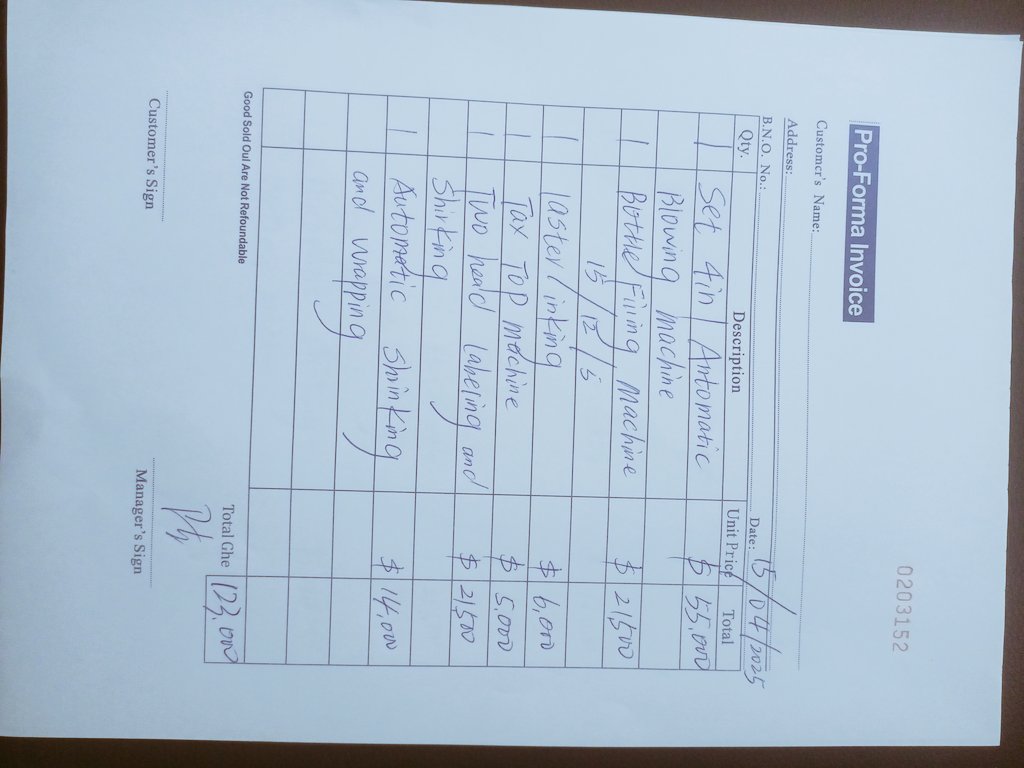 0203152
Pro-Forma Invoice
Customer's Name:
Address:
B.N.O. No.: Date: 15/04/2025
Qty. Description Unit Price Total
1 Set 4in1 Automatic $ 55,000
Blowing Machine
1 Bottle Filling Machine $ 21500
15/12/5
1 laster/inking $ 6,000
1 Tax Top Machine $ 5,000
1 Two head labeling and $ 21500
Shirking
1 Automatic Shrinking $ 14,000
and wrapping
Total Gh¢ 123,000
Good Sold Out Are Not Refoundable
Customer's Sign Manager's Sign